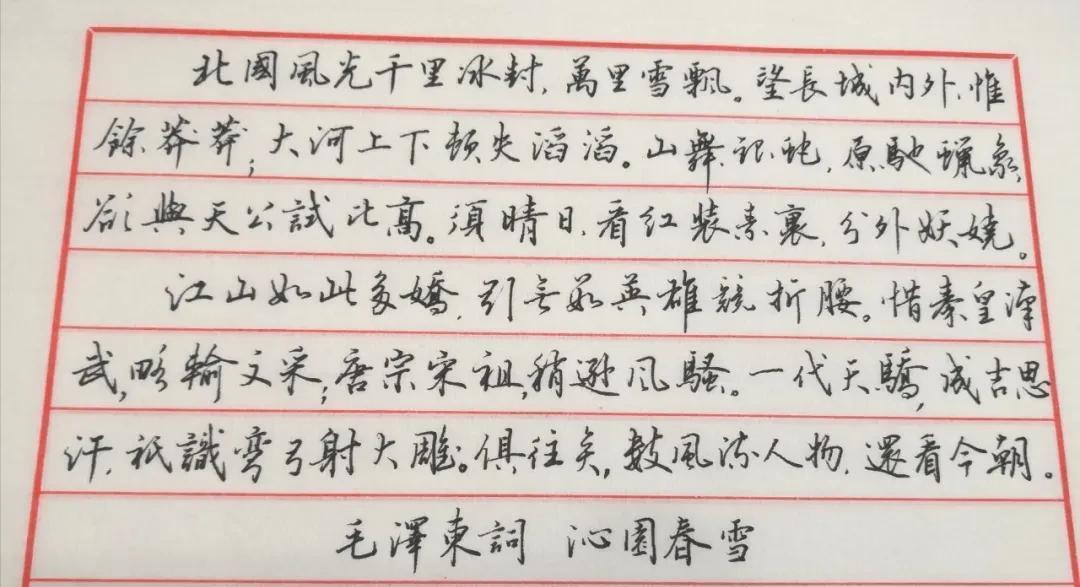 北國風光千里冰封,萬里雪飄。望長城内外,惟
餘莽莽;大河上下頓失滔滔。山舞銀蛇,原馳蠟象,
欲與天公試比高。須晴日,看红裝素裹,分外妖娆。
江山如此多嬌,引無数英雄競折腰。惜秦皇漢
武,略輸文采;唐宗宋祖,稍遜风騷。一代天驕,成吉思
汗,衹識彎弓射大雕。俱往矣,数風流人物,還看今朝。
毛澤東詞 沁園春雪